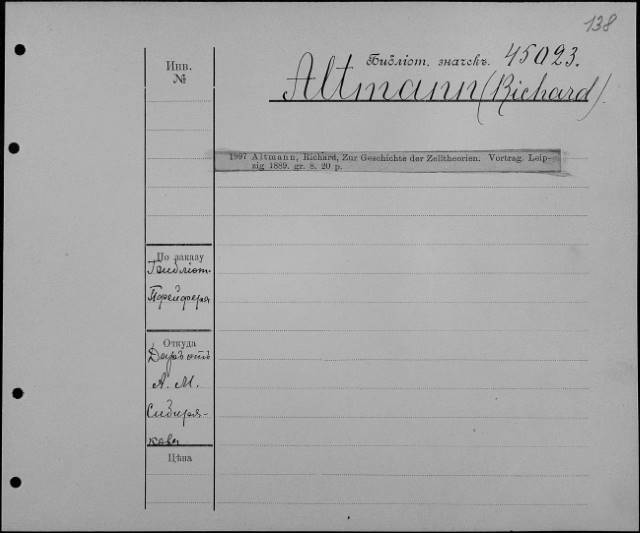 138
Библіот. значекъ. 45023.
Altmann (Richard).
Инв.
№
1997 Altmann, Richard, Zur Geschichte der Zelltheorien. Vortrag. Leip-
zig 1889. gr. 8. 20 p.
По заказу
Библіот.
Пфейфера
Откуда
Даръ отъ
А. М.
Сибиря-
кова
Цѣна